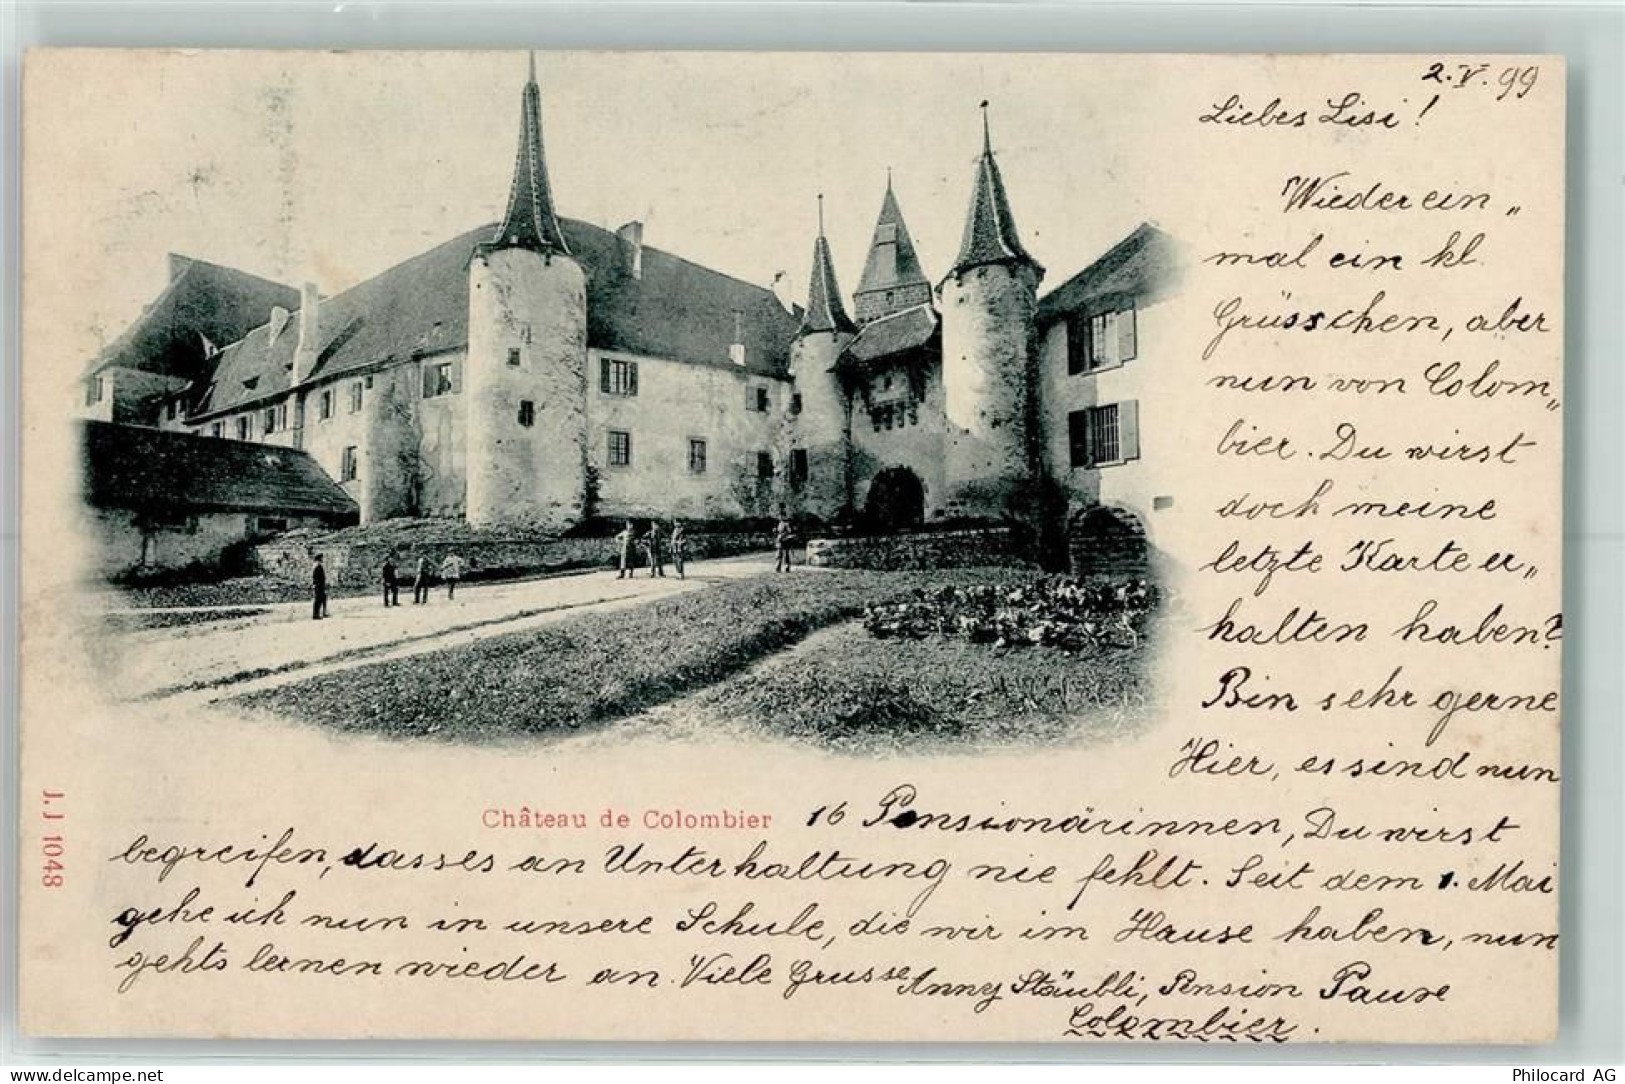 2. V. 99
Liebes Lisi!
Wieder ein„
mal ein kl.
Grüsschen, aber
nun von Colom„
bier. Du wirst
doch meine
letzte Karte er„
halten haben?
Bin sehr gerne
Hier, es sind nun
Château de Colombier
16 Pensionärinnen, Du wirst
begreifen, dass es an Unterhaltung nie fehlt. Seit dem 1. Mai
gehe ich nun in unsere Schule, die wir im Hause haben, nun
gehts lernen wieder an. Viele Grüsse Anny Stäubli, Pension
Colombier.
J. J. 1048
delcampe.net
Philocard AG